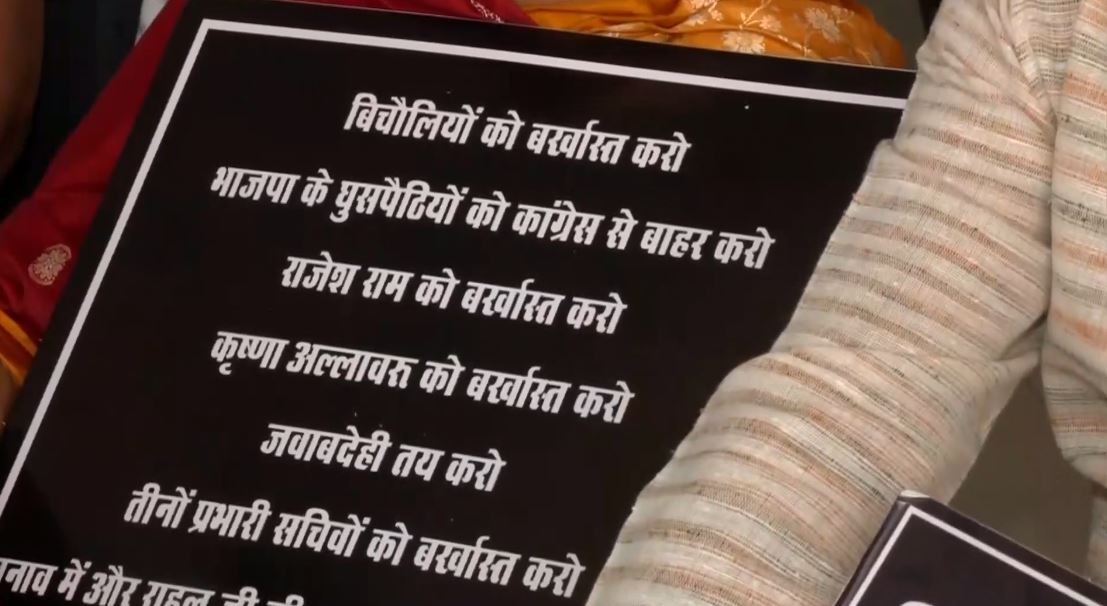 बिचौलियों को बर्खास्त करो
भाजपा के घुसपैठियों को कांग्रेस से बाहर करो
राजेश राम को बर्खास्त करो
कृष्णा अल्लावरु को बर्खास्त करो
जवाबदेही तय करो
तीनों प्रभारी सचिवों को बर्खास्त करो
में और राहुल जी